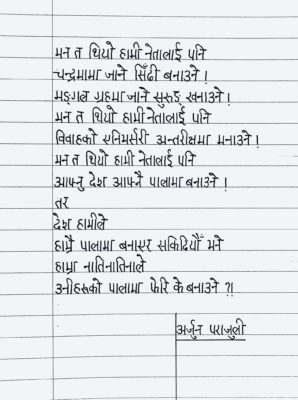 मन त थियो हामी नेतालाई पनि
चन्द्रमामा जाने सिँढी बनाउने !
मङ्गल ग्रहमा जाने सुरुङ खनाउने !
मन त थियो हामी नेतालाई पनि
विवाहको एनिमर्सरी अन्तरीक्षमा मनाउने !
मन त थियो हामी नेतालाई पनि
आफ्नु देश आफ्नै पालामा बनाउने !
तर
देश हामीले
हाम्रै पालामा बनाएर सकिदियौँ भने
हाम्रा नातिनातिनाले
उनीहरूको पालामा फेरि के बनाउने ?!
अर्जुन पराजुली